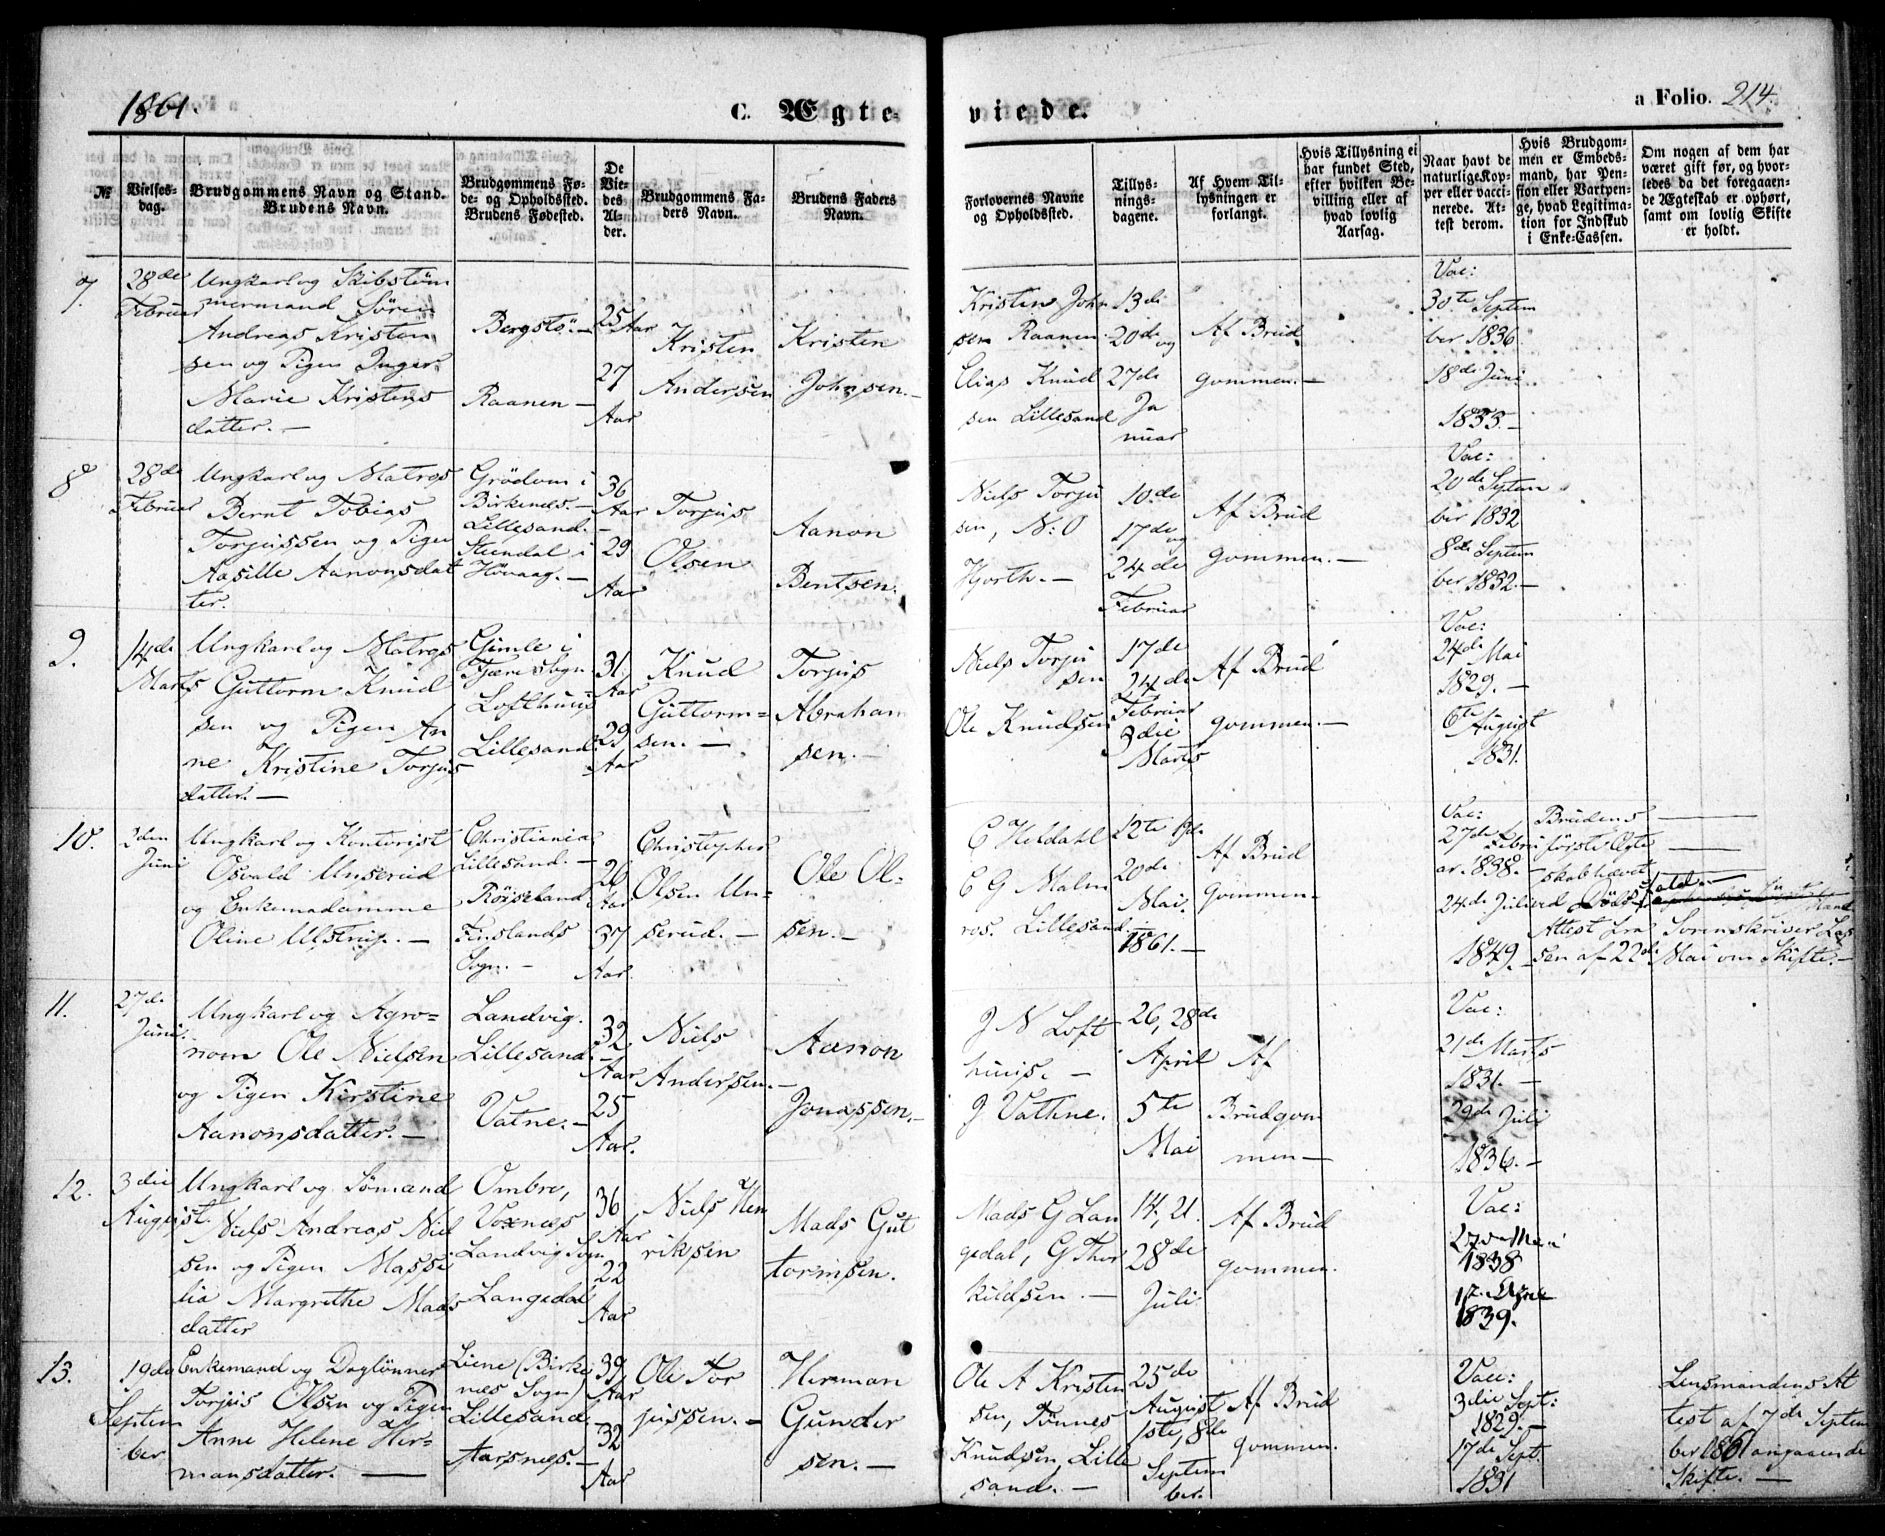 1861.
C. Ægte-
viede.
a Folio. 214.
№
Vielses-
dag.
Brudgommens Navn og Stand.
Brudens Navn.
Brudgommens Fø-
de- og Opholdssted.
Brudens Fødested.
De
Vie-
des
Al-
der.
Brudgommens Fa-
ders Navn.
Brudens Faders
Navn.
Forlovernes Navne
og Opholdssted.
Tillys-
nings-
dagene.
Af Hvem Til-
lysningen er
forlangt.
Hvis Tillysning ei
har fundet Sted,
efter hvilken Be-
villing eller af
hvad lovlig
Aarsag.
Naar havt de
naturlige Kop-
per eller vacci-
nerede. At-
test derom.
Hvis Brudgom-
men er Embeds-
mand, har Pen-
sion eller Vartpen-
ge, hvad Legitima-
tion for Indskud
i Enke-Cassen.
Om nogen af dem har
været gift før, og hvor-
ledes da det foregaaen-
de Ægteskab er ophørt,
samt om lovlig Skifte
er holdt.
7.
28de
Februar
Ungkarl og Skibstøm
mermand Sören
Andreas Kristen
sen og Pigen Inger
Marie Kristens
datter. —
Bergstö. —
Raanen —
25 Aar
27
Aar
Kristen
Andersen
Kristen
Johnsen. —
Kristen John
sen Raanen.
Elias Knud
sen Lillesand
13de
20de og
27de
Ja
nuar
Af Brud
gommen. —
Vac:
30te Septem
ber 1836
18de Juni
1833. —
8
28de
Februar
Ungkarl og Matros
Bernt Tobias
Torjussen og Pigen
Aasille Aanonsdat
ter.
Grödum i
Birkenes. —
Lillesand. —
Steindal i
Hövaag. —
36
Aar
29
Aar
Torjus
Olsen
Aanon
Bentsen.
Niels Torju
sen, N: O
Hjorth. —
10de
17de og
24de
Februar
Af Brud
gommen. —
Vac:
20de Septem
ber 1832
8de Septem
ber 1832. —
9.
14de
Marts
Ungkarl og Matros
Guttorm Knud
sen og Pigen An
ne Kristine Torjus
datter. —
Gimle i
Tjære Sogn
Lofthuus
Lillesand.
31
Aar
29
Aar
Knud
Guttorm=
sen. —
Torjus
Abraham
sen. —
Niels Torju
sen
Ole Knudsen
17de
24de
Februar
3die
Marts
Af Brud
gommen. —
Vac:
24de Mai
1829. —
6te August
1831.
10.
3den
Juni
Ungkarl og Kontorist
Osvald Unserud
og Enkemadamme
Oline Ulstrup. —
Christiania
Lillesand. —
Röiseland
Finslands
Sogn. —
26
Aar
37
Aar
Christopher
Olsen Un-
serud. —
Ole Ol-
sen. —
C Heldahl
C G Malm
ros. Lillesand. —
12te 19de
20de
Mai.
1861. —
Af Brud
gommen —
Vac:
27de Febru
ar. 1838. —
24de Juli
1849. —
Brudens
første Ægte
skab hævet
ved Döds
fald. —
Attest fra Sorenskriver Las
sen af 22de Mai om Skifte. —
11.
27de
Juni.
Ungkarl og Agro=
nom Ole Nielsen
og Pigen Kirstine
Aanonsdatter. —
Landvig.
Lillesand. —
Vatne. —
32
Aar
25
Aar.
Niels
Andersen. —
Aanon
Jonassen. —
J N Loft
huus. —
J Vathne.
26, 28de
April
5te
Mai
Af
Brudgom
men —
Vac:
21de Marts
1831. —
29de Juli
1836. —
12.
3die
August.
Ungkarl og Sömand
Niels Andreas Niel
sen og Pigen Massi
lia Margrethe Mads
datter
Ombre,
Voxnæs
Landvig Sogn
Langedal
36
Aar
22
Aar
Niels Hen
riksen
Mads Gut
tormsen.
Mads G Lan
gedal, G Thor
kildsen. —
14, 21.
28de
Juli
Af Brud
gommen.
Vac:
1838
1839.
13.
19de
Septem
ber
Enkemand og Daglönner
Torjus Olsen og Pigen
Anne Helene Her=
mansdatter. —
Liene (Birke
næs Sogn)
Lillesand —
Aarsnes. —
39
Aar
32
Aar
Ole Tor
jussen. —
Herman
Gunder
sen. —
Ole A Kristen
sen, Tönnes
Knudsen, Lille
sand. —
25de
August
1ste, 8de
Septem
ber.
Af Brud
gommen.
Vacc:
3die Sept:
1829. —
17de Sept.
1831
Lensmandens At
test af 7de Septem
ber 1861 angaaende
Skifte. —